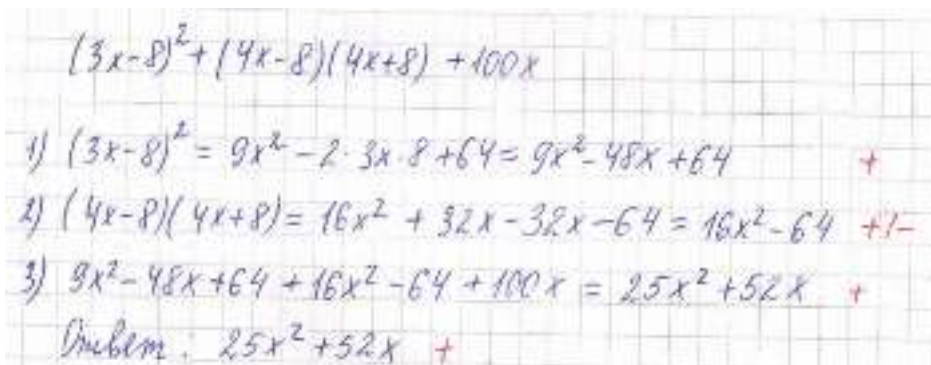 (3x-8)² + (4x-8)(4x+8) + 100x
1) (3x-8)² = 9x² - 2·3x·8 + 64 = 9x² - 48x + 64 +
2) (4x-8)(4x+8) = 16x² + 32x - 32x - 64 = 16x² - 64 +/-
3) 9x² - 48x + 64 + 16x² - 64 + 100x = 25x² + 52x +
Ответ: 25x² + 52x +